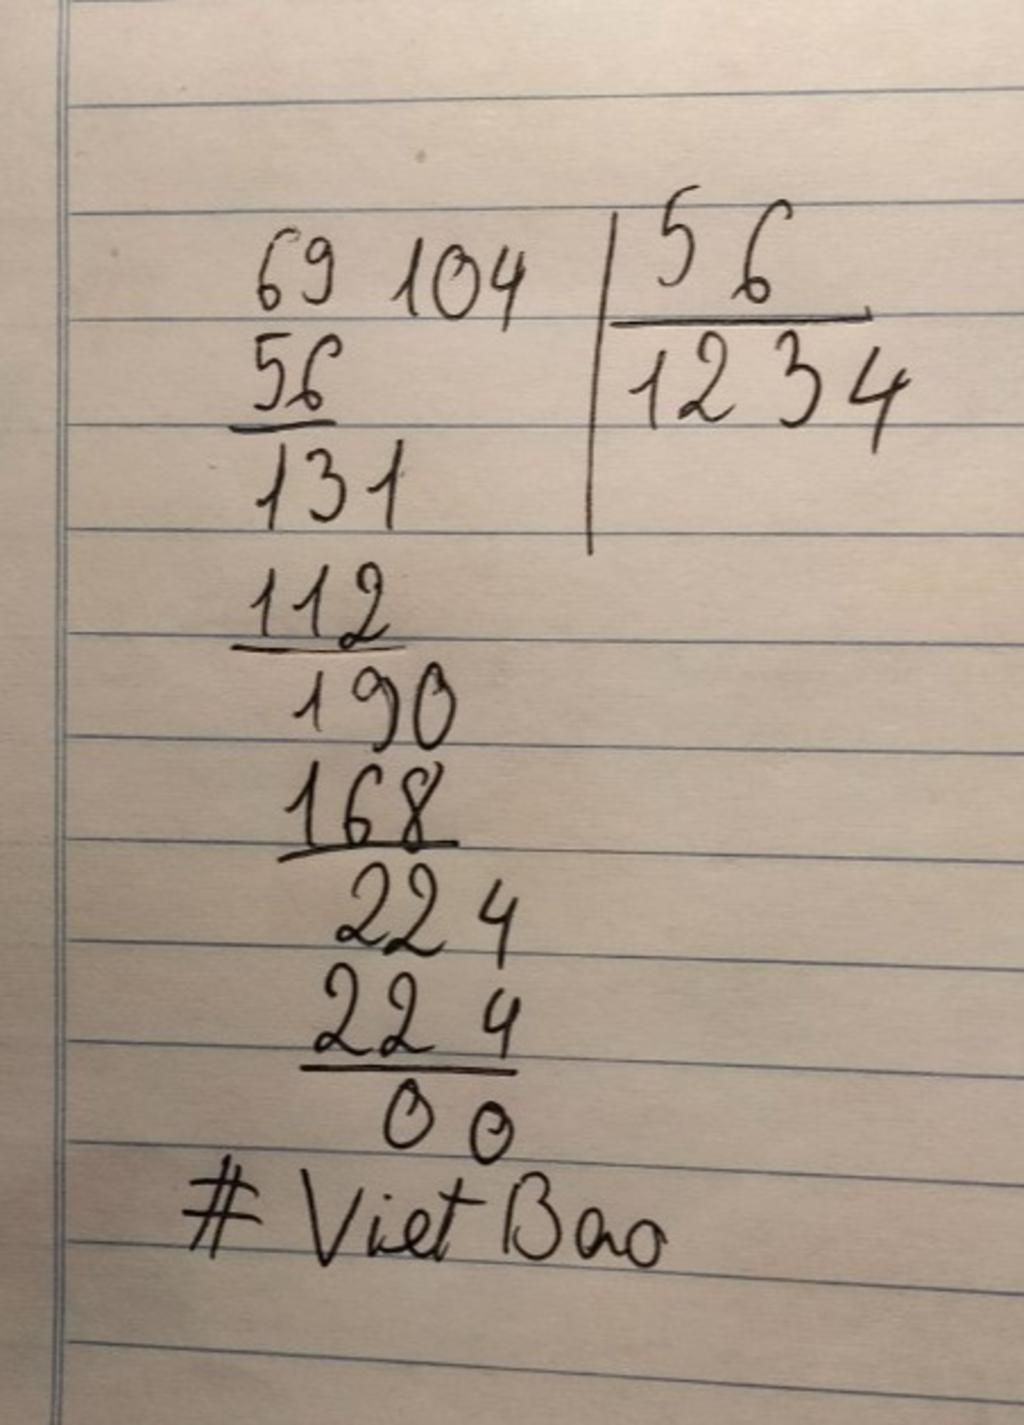 69 104 | 56
56 1234
131
112
190
168
224
224
00
# Viet Bao